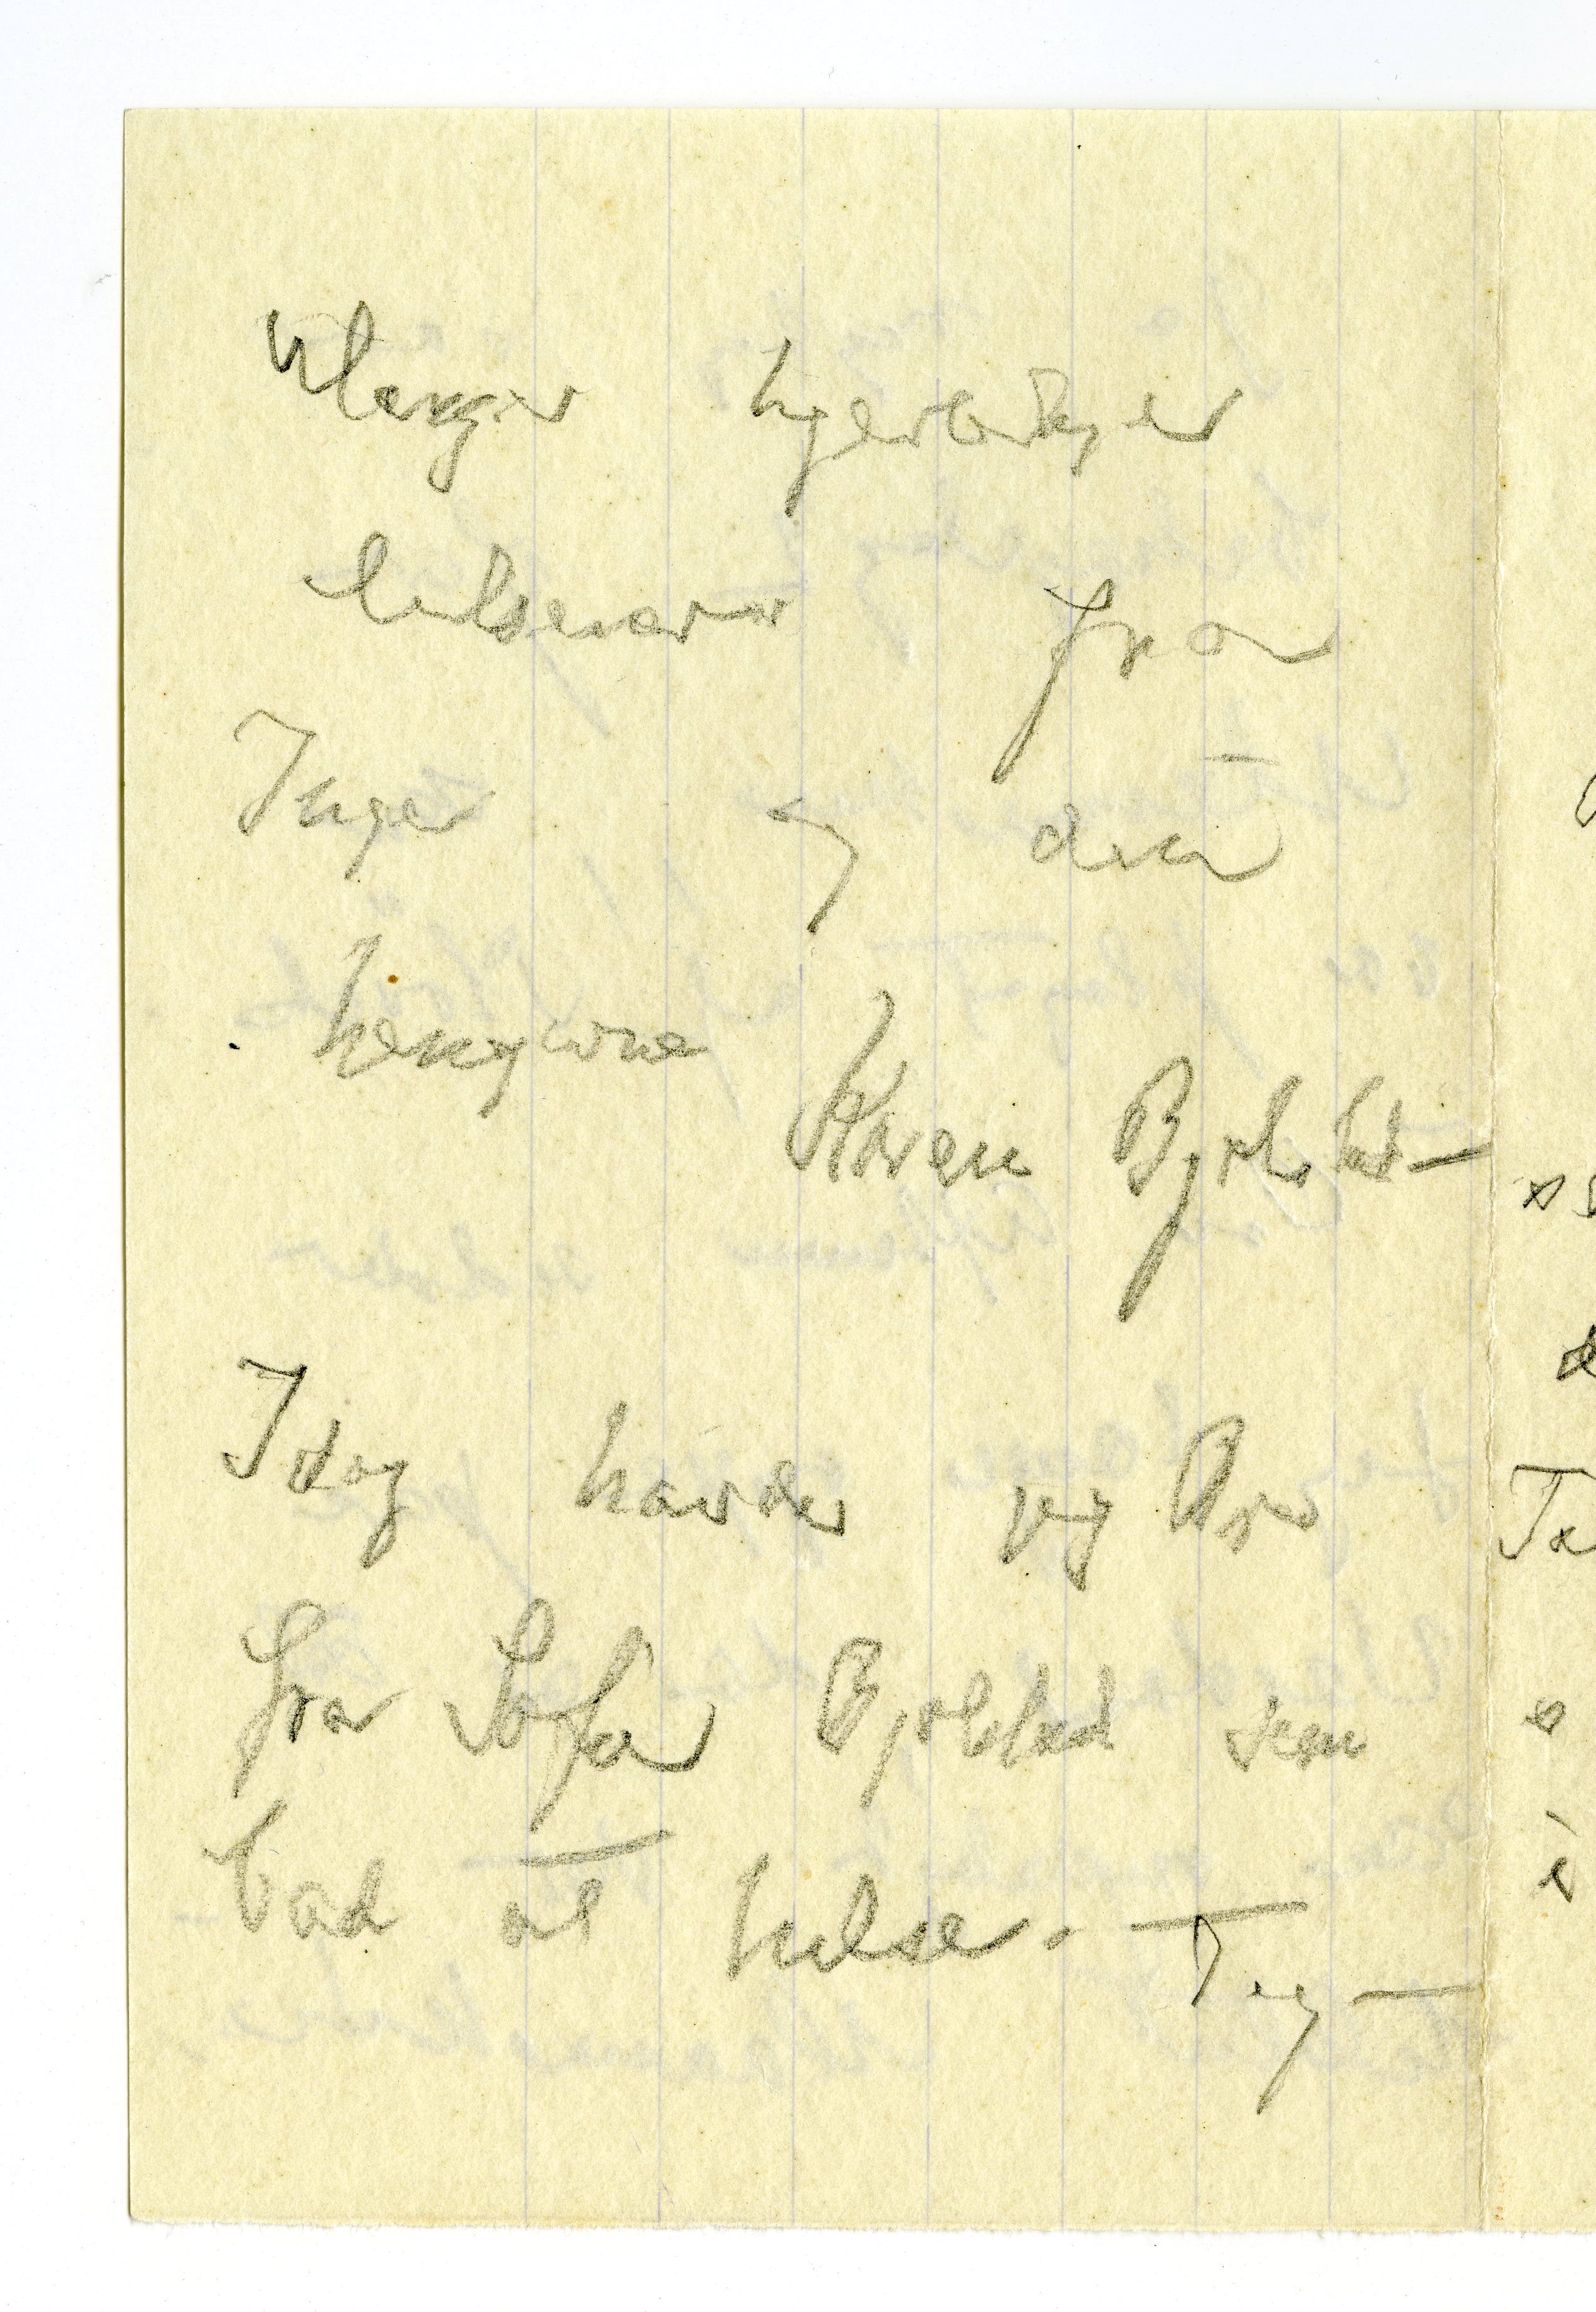 Mange hjertelige
hilsener fra
Inger og din
hengivne
Karen Bjølstad—
Idag havde jeg Brev
fra Sofie Bjølstad som
bad at hilse. Jeg—